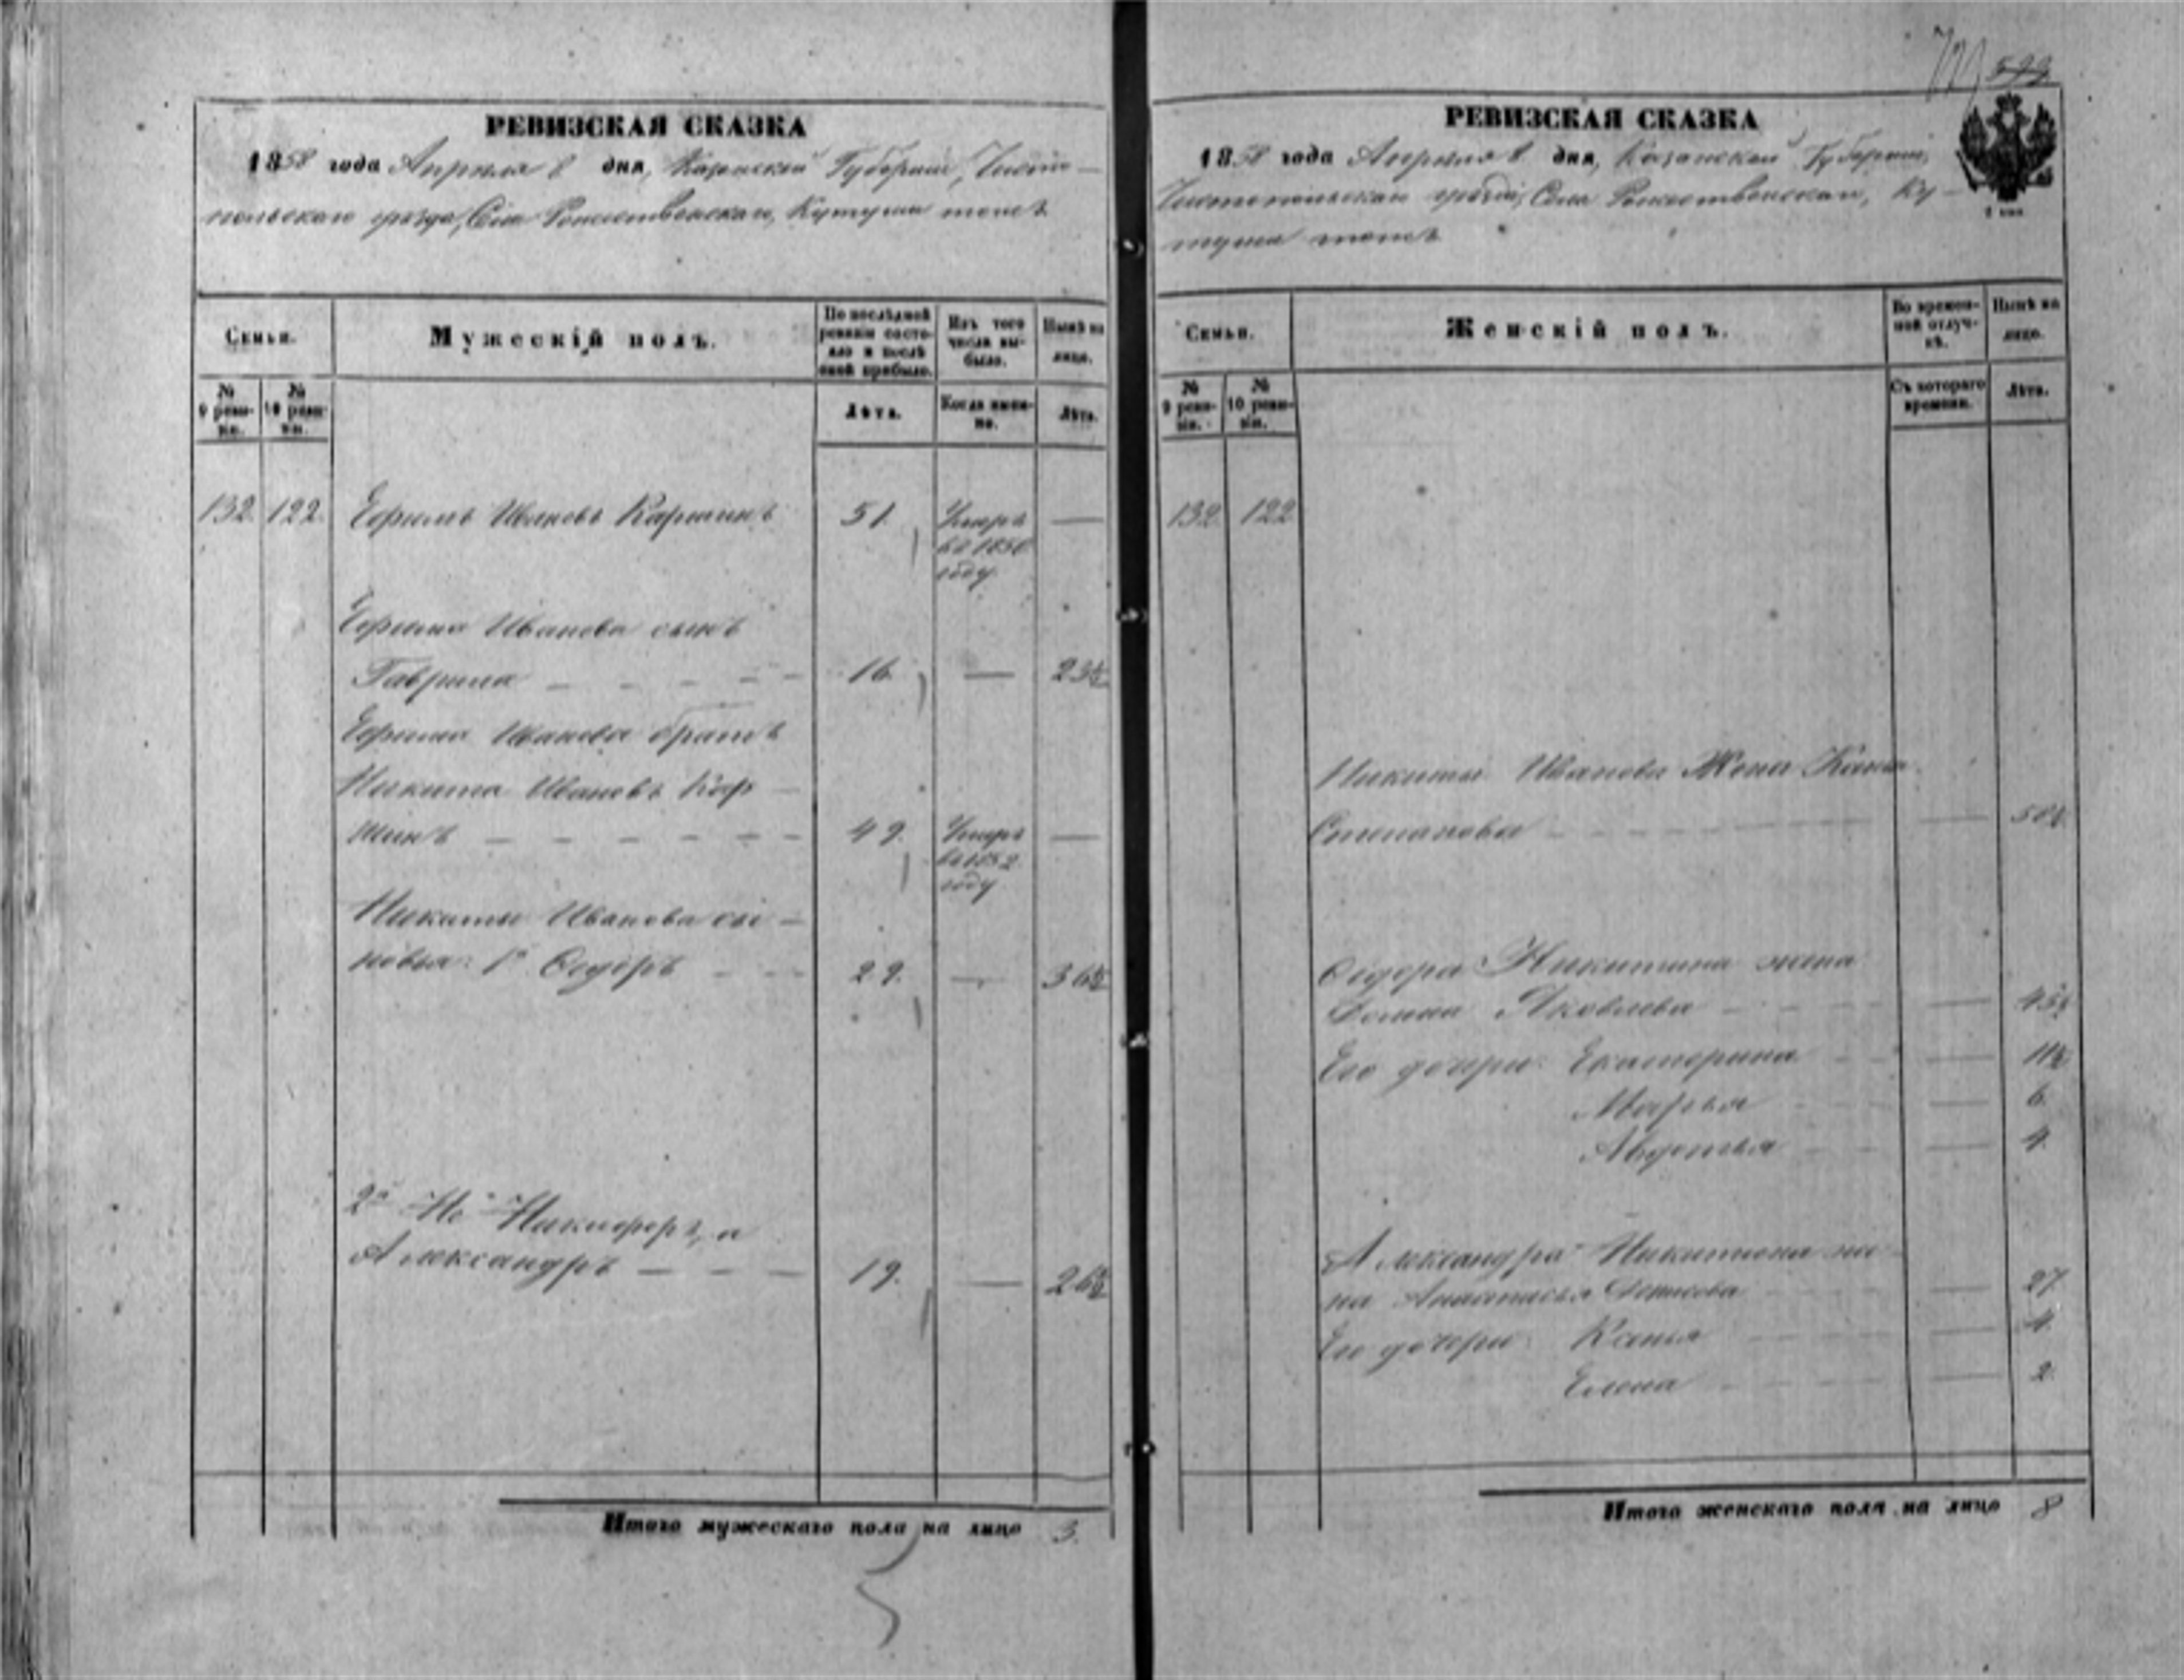 РЕВИЗСКАЯ СКАЗКА
1858 года Апреля 8 дня, Казанской Губернии, Чисто-
польскаго уезда, Села Рожественскаго, Кутуша тожъ
Семьи.
Мужескій полъ.
По послѣдней ревизіи состо-
яло и послѣ оной прибыло.
Изъ того числа вы-
было.
Нынѣ на лицо.
№ 9 реви-
зіи.
№ 10 реви-
зіи.
Лѣта.
Когда имен-
но.
Лѣта.
132. 122. Ефимъ Ивановъ Каршинъ 51. Умеръ —
въ 1850
году.
Ефима Иванова сынъ
Гаврила — — — — — 16. — 23½
Ефима Иванова братъ
Никита Ивановъ Кар-
шинъ — — — — — — 49. Умеръ —
въ 1852
году
Никиты Иванова сы-
новья: 1й Сидоръ — — 29. — 36½
2й Не Никифоръ, а
Александръ — — — 19. — 26½
Итого мужескаго пола на лицо 3.
523
РЕВИЗСКАЯ СКАЗКА
1858 года Апреля 8 дня, Казанской Губернии,
Чистопольскаго уезда, Села Рожественскаго, Ку-
туша тожъ
Семьи.
Женскій полъ.
Во времен-
ной отлуч-
кѣ.
Нынѣ на лицо.
№ 9 реви-
зіи.
№ 10 реви-
зіи.
Съ котораго времени.
Лѣта.
132. 122
Никиты Иванова Жена
Степанова — — — — —
Сидора Никитина жена
Яковлева — — — —
Его дочери: Екатерина — — 11½
Марья — — 6.
Авдотья — — 4.
Александра Никитина же-
на Анастасья Денисова — 27
Его дочери: Ксенья — — 4.
Елена — — 2.
Итого женскаго пола на лицо 8